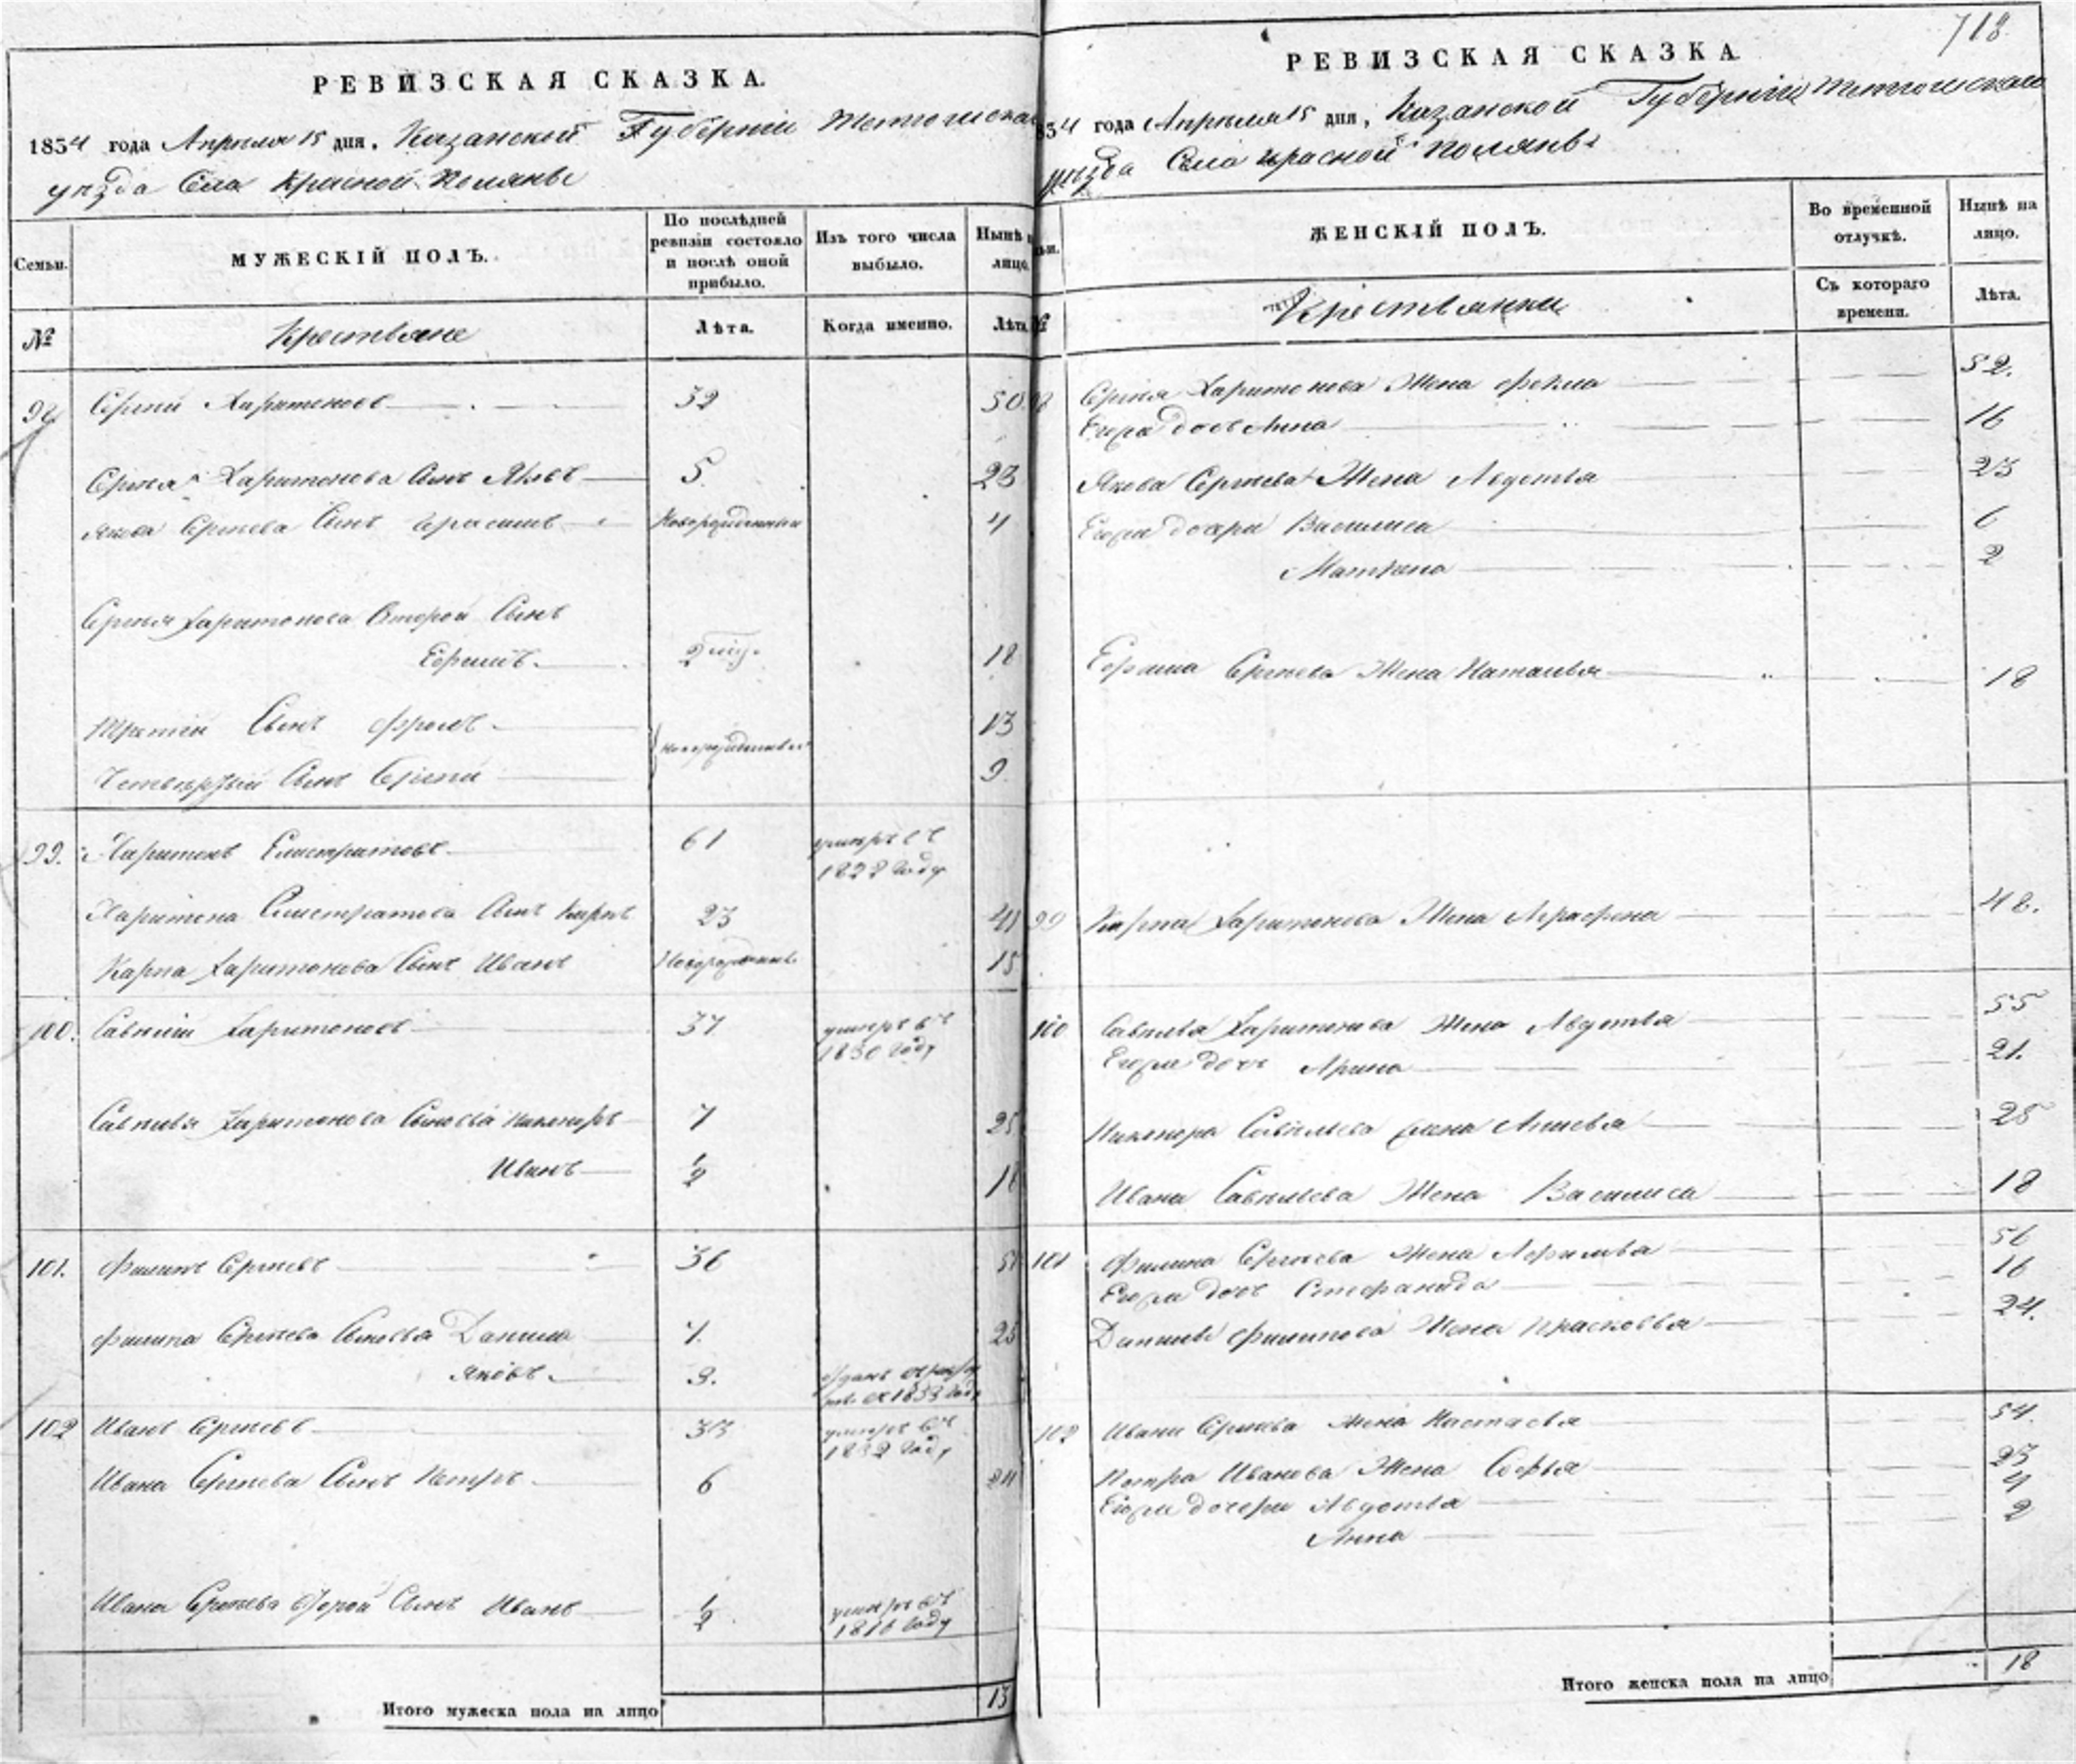 РЕВИЗСКАЯ СКАЗКА.
1834 года Апреля 15 дня, Казанской Губернии Тетюшска
уезда Села Красной Поляны
Семьи.
МУЖЕСКІЙ ПОЛЪ.
По послѣдней ревизіи состояло и послѣ оной прибыло.
Изъ того числа выбыло.
Нынѣ лицо.
№
Крестьяне
Лѣта.
Когда именно.
Лѣта
98 Сергѣй Харитоновъ 32 50
Сергѣя Харитонова Сынъ Яковъ 5. 23
Якова Сергѣева Сынъ Герасимъ Новорожденный 4
Сергѣя Харитонова Второй Сынъ
Ефимъ 2 18
Третій Сынъ Фролъ 13
Новорожденные
Четвертый Сынъ Сергѣй 9.
99. Харитонъ Елистратовъ 61 умеръ въ
1822 году
Харитона Елистратова Сынъ Карпъ 23 41
Карпа Харитонова Сынъ Иванъ Новорожденный 15
100. Савелій Харитоновъ 37 умеръ въ
1830 году
Савелья Харитонова Сыновья Никифоръ 7 25
Иванъ 1/2 18
101. Филипъ Сергѣевъ 36
Филипа Сергѣева Сыновья Данила 7. 25
Яковъ 3. отданъ
1833 года
102 Иванъ Сергѣевъ 33 умеръ въ
1832 году
Ивана Сергѣева Сынъ Петръ 6 24
Ивана Сергѣева Второй Сынъ Иванъ 1/2 умеръ въ
1816 году
Итого мужеска пола на лицо 13
718
РЕВИЗСКАЯ СКАЗКА
834 года Апреля 15 дня, Казанской Губернии Тетюшскаго
уезда Села Красной Поляны
ьи.
ЖЕНСКІЙ ПОЛЪ.
Во временной отлучкѣ.
Нынѣ на лицо.
№
Крестьянки
Съ котораго времени.
Лѣта.
98 Сергѣя Харитонова Жена Фекла 52.
Егора дочь Анна 16
Якова Сергѣева Жена Авдотья 23
Егора дочери Василиса 6
Матрена 2
Ефима Сергѣева Жена Наталья 18
99 Карпа Харитонова Жена Аграфена 48.
100 Савелья Харитонова Жена Авдотья 55
Егора дочь Арина 21.
Никифора Савельева Жена 25
Ивана Савельева Жена Василиса 18
101 Филипа Сергѣева Жена 56
Егора дочь Стефанида 16
Данилы Филипова Жена Прасковья 24.
102 Ивана Сергѣева Жена Настасья 54.
Петра Иванова Жена Софья 23
Егора дочери Авдотья 4
Анна 2
Итого женска пола на лицо 18